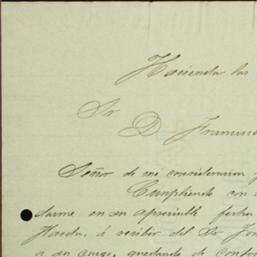 Hacienda las
Sr
D Francisco
Señor de mi consideracion
Cumpliendo con
darme en su apreciable fecha
á recibir del Sr
a su cargo, quedando de